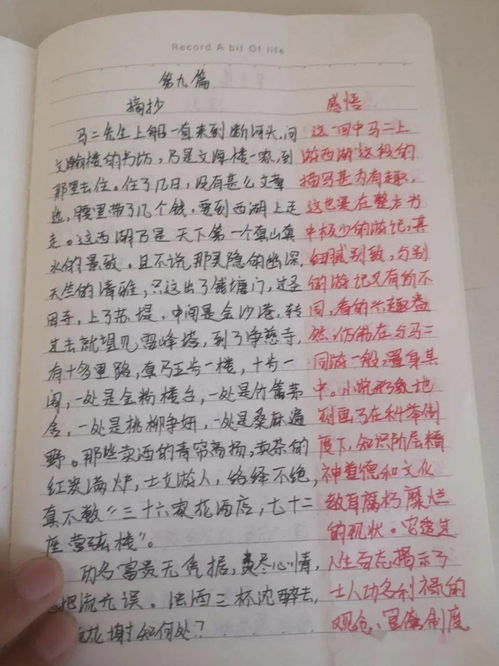 Record A bit Of life
第九篇
摘抄
马二先生上船一直来到断河头,问
文瀚楼的书坊,乃是文海楼一家,到
那里去住。住了几日,没有甚么文章
选,腰里带了几个钱,要到西湖上走
走。这西湖乃是天下第一个真山真
水的景致。且不说那灵隐的幽深,
天竺的清雅,只这出了钱塘门,过圣
因寺,上了苏堤,中间是金沙港,转
过去就望见雷峰塔,到了净慈寺,
有十多里路,真乃五步一楼,十步一
阁,一处是金粉楼台,一处是竹篱茅
舍,一处是桃柳争妍,一处是桑麻遍
野。那些卖酒的青帘高扬,卖茶的
红炭满炉,士女游人,络绎不绝,
真不数“三十六家花酒店,七十二
座管弦楼”。
功名富贵无凭据,费尽心情,
把流光误。浊酒三杯沉醉去,
花谢知何处?
感悟
这一回中马二上
游西湖这段的
描写甚为有趣,
这也是在整本书
中极少的游记,甚
细腻别致,与别
的游记又有所不
同,看的兴趣盎
然,仿佛在与马二
同游一般,置身其
中。小说形象地
刻画了在科举制
度下,知识阶层精
神道德和文化
教育腐朽糜烂
的现状。它透过
人生百态,揭示了
士人功名利禄的
观念、官僚制度